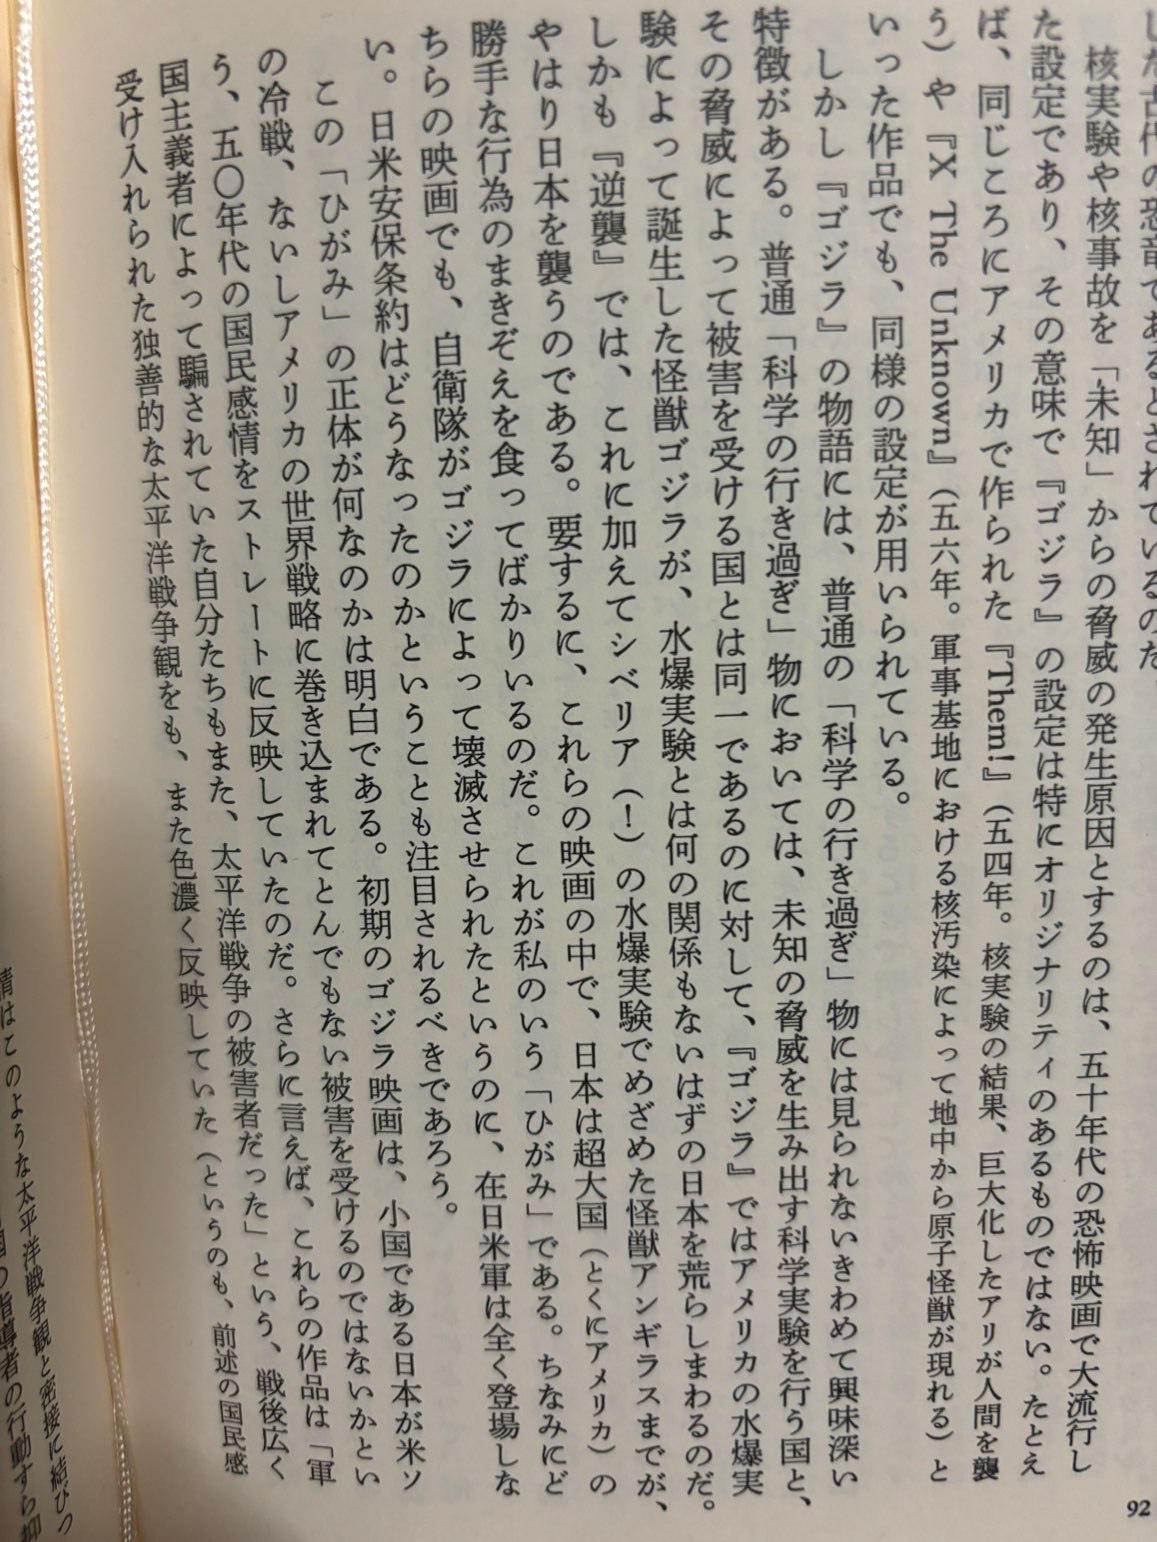 した古代の恐竜であるとされているのだ。
核実験や核事故を「未知」からの脅威の発生原因とするのは、五十年代の恐怖映画で大流行し
た設定であり、その意味で『ゴジラ』の設定は特にオリジナリティのあるものではない。たとえ
ば、同じころにアメリカで作られた『Them!』（五四年。核実験の結果、巨大化したアリが人間を襲
う）や『X The Unknown』（五六年。軍事基地における核汚染によって地中から原子怪獣が現れる）と
いった作品でも、同様の設定が用いられている。
しかし『ゴジラ』の物語には、普通の「科学の行き過ぎ」物には見られないきわめて興味深い
特徴がある。普通「科学の行き過ぎ」物においては、未知の脅威を生み出す科学実験を行う国と、
その脅威によって被害を受ける国とは同一であるのに対して、『ゴジラ』ではアメリカの水爆実
験によって誕生した怪獣ゴジラが、水爆実験とは何の関係もないはずの日本を荒らしまわるのだ。
しかも『逆襲』では、これに加えてシベリア（！）の水爆実験でめざめた怪獣アンギラスまでが、
やはり日本を襲うのである。要するに、これらの映画の中で、日本は超大国（とくにアメリカ）の
勝手な行為のまきぞえを食ってばかりいるのだ。これが私のいう「ひがみ」である。ちなみにど
ちらの映画でも、自衛隊がゴジラによって壊滅させられたというのに、在日米軍は全く登場しな
い。日米安保条約はどうなったのかということも注目されるべきであろう。
この「ひがみ」の正体が何なのかは明白である。初期のゴジラ映画は、小国である日本が米ソ
の冷戦、ないしアメリカの世界戦略に巻き込まれてとんでもない被害を受けるのではないかとい
う、五〇年代の国民感情をストレートに反映していたのだ。さらに言えば、これらの作品は「軍
国主義者によって騙されていた自分たちもまた、太平洋戦争の被害者だった」という、戦後広く
受け入れられた独善的な太平洋戦争観をも、また色濃く反映していた（というのも、前述の国民感
92
情はこのような太平洋戦争観と密接に結びつ
の指導者の行動すら抑